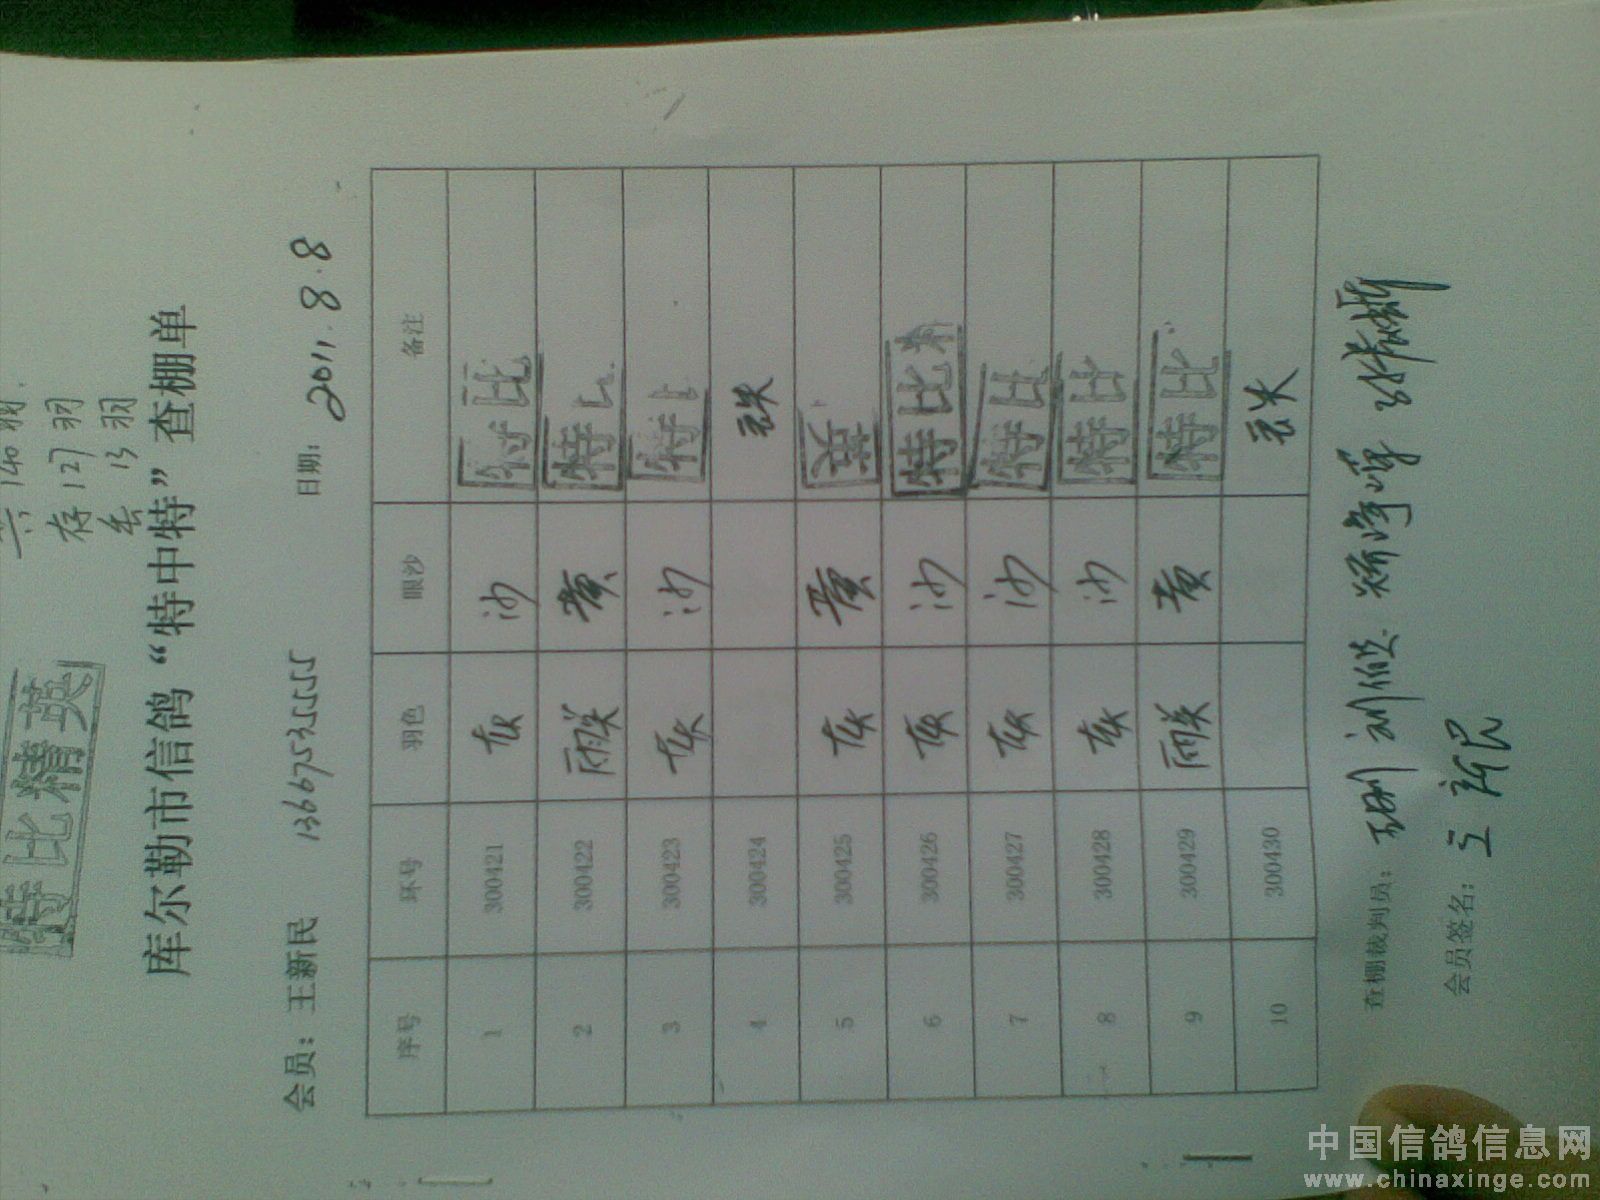 共 140 羽
存 127 羽
丢 13 羽
特比精英
库尔勒市信鸽“特中特”查棚单
会员：王新民 13667532555 日期：2011.8.8
序号 环号 羽色 眼沙 备注
1 300421 灰 沙 特比
2 300422 雨 黄 特
3 300423 灰 沙 特
4 300424 丢失
5 300425 灰 黄 英
6 300426 灰 沙 特比精
7 300427 灰 沙 特比
8 300428 灰 沙 特比
9 300429 雨 黄 特比
10 300430 丢失
查棚裁判员：
会员签名：王新民
中国信鸽信息网
www.chinaxinge.com